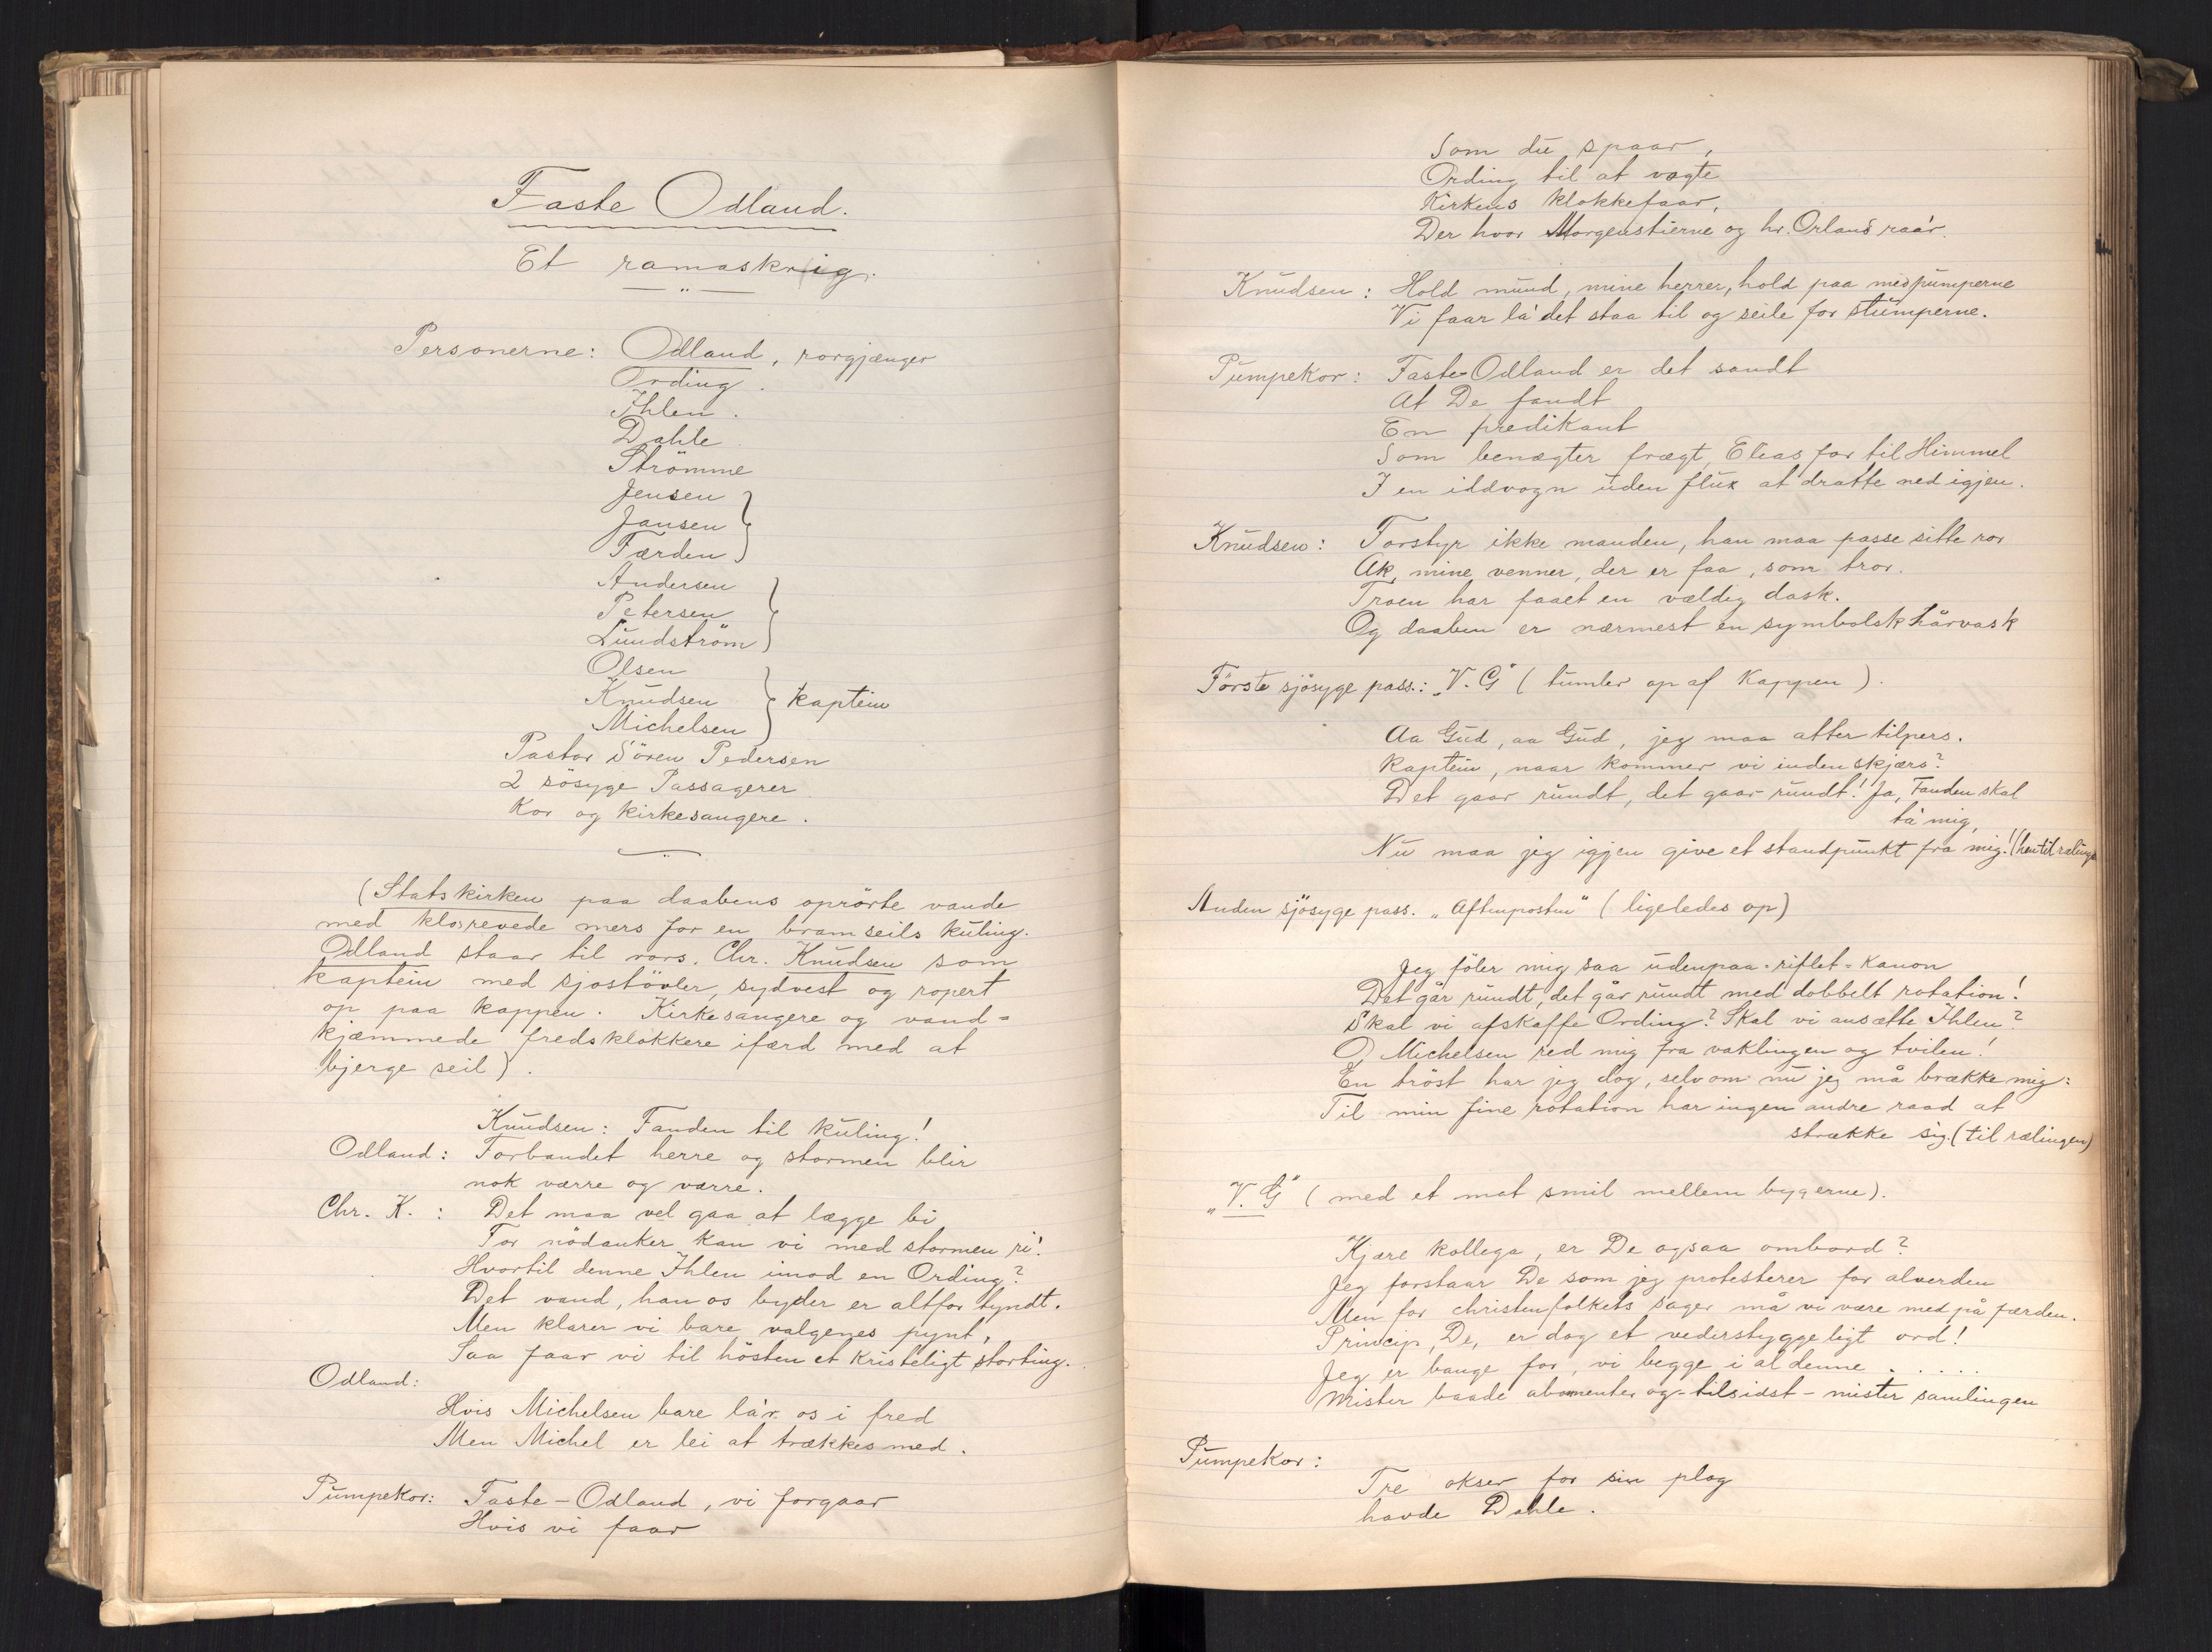 Faste Odland.
Et ramaskrig.
Personerne: Odland, rorgjænger
Ording.
Ihlen.
Dahle
Strömme
Jensen
Jansen
Færden
Andersen
Petersen
Lundström
Olsen
Knudsen kaptein
Michelsen
Pastor Sören Pedersen
2 sösyge Passagerer.
Kor og kirkesangere.
(Statskirken paa daabens oprörte vande
med klosrevede mers for en bramseils kuling.
Odland staar til rors. Chr. Knudsen som
kaptein med sjostövler, sydvest og ropert
op paa kappen. Kirkesangere og vand-
kjæmmede fredsklokkere ifærd med at
bjerge seil).
Knudsen: Fanden til kuling!
Odland: Forbandet herre og stormen blir
nok værre og værre.
Chr. K.: Det maa vel gaa at lægge bi
For nödanker kan vi med stormen ri!
Hvortil denne Ihlen imod en Ording?
Det vand, han os byder er altfor tyndt.
Men klarer vi bare valgenes pynt,
Saa faar vi til hösten et kristeligt storting.
Odland:
Hvis Michelsen bare la'r os i fred
Men Michel er lei at trækkes med.
Pumpekor: Faste-Odland, vi forgaar
Hvis vi faar
Som du spaar,
Ording til at vogte
Kirkens klokkefaar,
Der hvor Morgenstierne og hr. Orland raa'r.
Knudsen: Hold mund, mine herrer, hold paa med pumperne
Vi faar la' det staa til og seile for stumperne.
Pumpekor: Faste-Odland er det sandt
At De fandt
En predikant
Som benægter frægt, Elias for til Himmel
I en ildvogn uden flux at dratte ned igjen.
Knudsen: Forstyr ikke manden, han maa passe sitte ror
Ak, mine venner, der er faa, som tror.
Troen har faaet en vældig dask.
Og daaben er nærmest en symbolsk hårvask
Förste sjösyge pass.: „V. G" (tumler op af Kappen).
Aa Gud, aa Gud, jeg maa atter tilpers.
Kaptein, naar kommer vi indenskjærs?
Det gaar rundt, det gaar rundt! Ja, Fanden skal
ta' mig,
Nu maa jeg igjen give et standpunkt fra mig! (hen til rælingen
Anden sjösyge pass. „Aftenposten" (ligeledes op)
Jeg föler mig saa udenpaa-riflet-kanon
Det går rundt, det går rundt med dobbelt rotation!
Skal vi afskaffe Ording? Skal vi ansætte Ihlen?
O Michelsen red mig fra vaklingen og tvilen!
En tröst har jeg dog, selvom nu jeg må brække mig:
Til min fine rotation har ingen andre raad at
strække sig. (til rælingen)
„V. G" (med et mat smil mellem bygerne).
Kjære kollega, er De ogsaa ombord?
Jeg forstaar De som jeg protesterer for alverden
Men for christenfolkets sager må vi være med på færden.
Princip, De, er dog et vederstyggeligt ord!
Jeg er bange for, vi begge i al denne . . . . .
Mister baade abonenter og - tilsidst - mister samlingen
Pumpekor:
Tre okser for sin plog
havde Dahle.